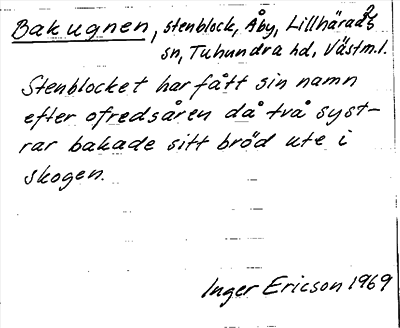 Bakugnen, stenblock, Åby, Lillhärads
sn, Tuhundra hd, Västm.l.
Stenblocket har fått sin namn
efter ofredsåren då två syst-
rar bakade sitt bröd ute i
skogen.
Inger Ericson 1969